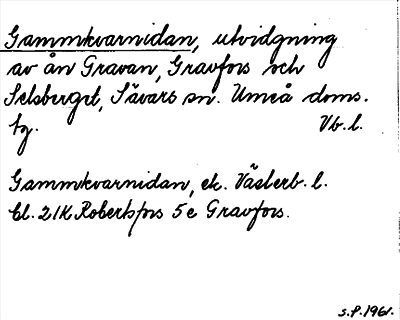 Gammkvarnidan, utvidgning
av ån Gravan, Gravfors och
Selsberget, Sävars sn. Umeå doms.
tg. Vb. l.
Gammkvarnidan, ek. Västerb. l.
bl. 21K Robertsfors 5e Gravfors.
s.f. 1961.